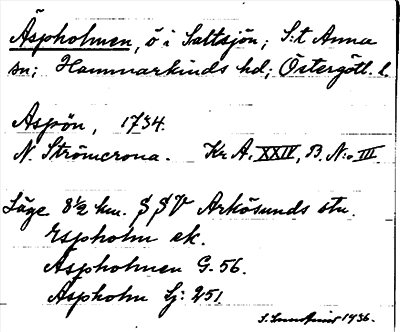 Äspholmen, ö i Saltsjön; S:t Anna
sn; Hammarkinds hd; Östergötl. l.
Aspön, 1734.
N. Strömcrona. Kr. A. XXIV, B. N:o III.
Läge 8½ km. SSV Arkösunds stn.
Espholm ek.
Aspholmen G. 56.
Äspholm Lj: 251
1936.